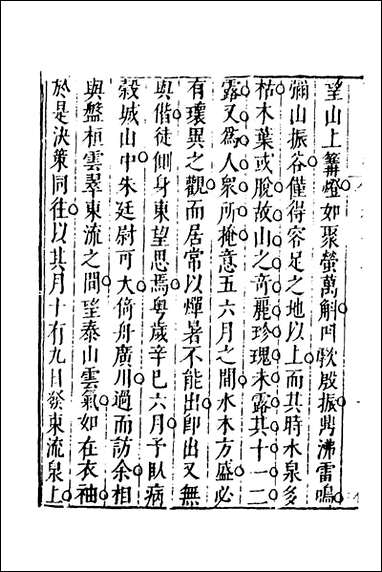 望山上籌燈如聚螢萬斛叫歌啟振鼎沸雷鳴
彌山振谷僅得容足之地以上而其時水泉多
枯木葉或脫故山之奇麗珍瑰未露其十一二
露又為人眾所掩意五六月之間水木方盛必
有瓌異之觀而居常以憚暑不能出卽出又無
與偕徒側身東望思焉粵歲辛巳六月予臥病
穀城山中朱廷尉可大倚舟廣川過而訪余相
與盤桓雲翠東流之間望泰山雲氣如在衣袖
於是決策同往以其月十有九日發東流泉上